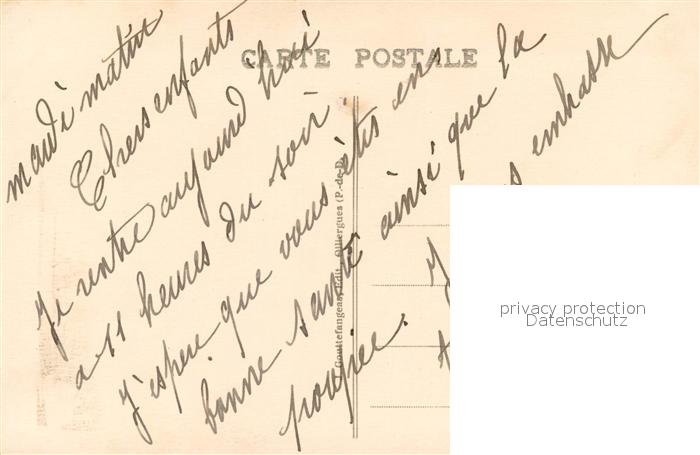 CARTE POSTALE
mardi matin
Chers enfants
Je rentre aujourd'hui
a 11 heures du soir.
J'espere que vous êtes en
bonne santé ainsi que la
poupée. J
s embrasse
Gouttefangeas, Edit. - Olliergues (P.-de-D.)
privacy protection
Datenschutz